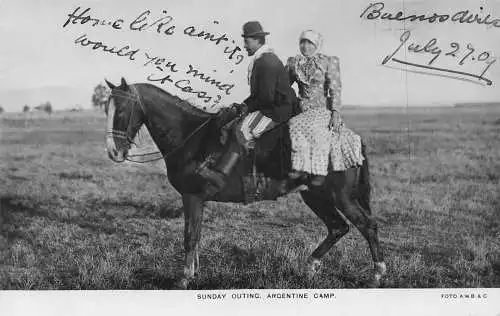 Home like ain't it?
would you mind
it Cass?
Buenos Aires
July 27.09
SUNDAY OUTING. ARGENTINE CAMP.
FOTO A.W.B & C